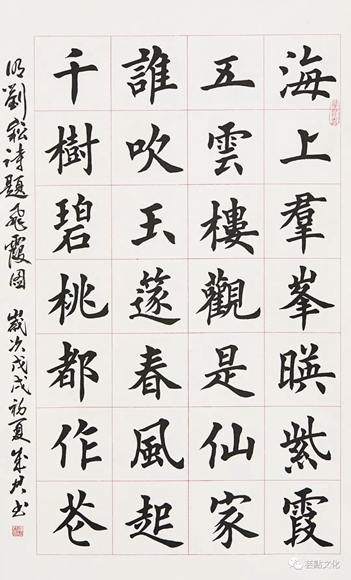 海上羣峯暎紫霞
五雲樓觀是仙家
誰吹玉篴春風起
千樹碧桃都作花
明劉崧詩題飛霞图 歲次戊戌初夏 书
芸點文化